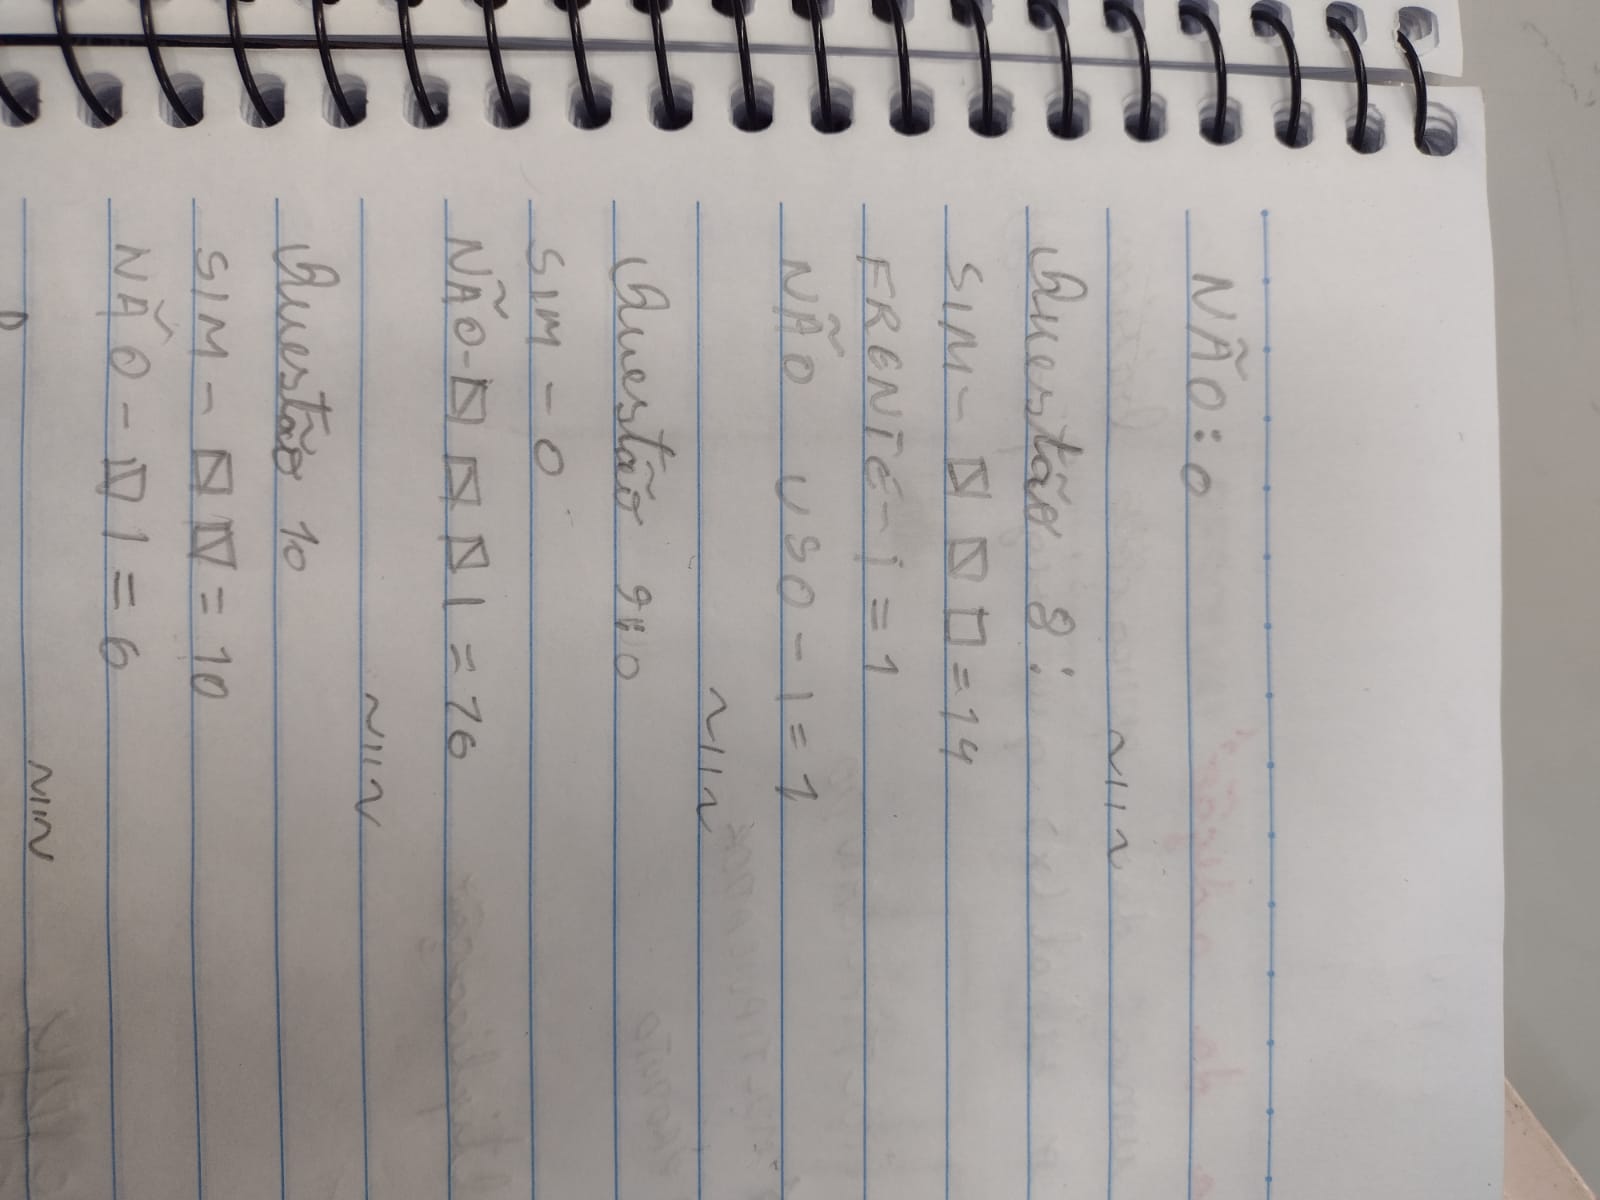 NÃO: 0
~11~
Questão 8:
SIM - ☐ ☐ ☐ = 14
FRENTE - 1 = 1
NÃO USO - 1 = 1
~11~
Questão 9:
SIM - 0
NÃO - ☐ ☐ ☐ 1 = 16
~11~
Questão 10
SIM - ☐ ☐ = 10
NÃO - ☐ 1 = 6
~11~